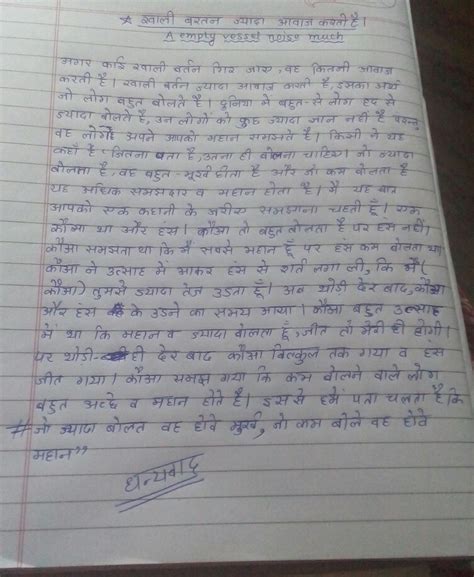 * खाली बरतन ज्यादा आवाज करती है।
A empty vessel noise much
मगर कोई खाली बर्तन गिर जाए, वह कितनी आवाज
करती है। खाली बर्तन ज्यादा आवाज करती है, इसका अर्थ
जो लोग बहुत बोलते है। दुनिया में बहुत-से लोग हद से
ज्यादा बोलते है, उन लोगों को कुछ ज्यादा ज्ञान नहीं है परन्तु
वह लोगो अपने आपको महान समझते है। किसी ने यह
कहाँ है "जितना पता है, उतना ही बोलना चाहिए। जो ज्यादा
बोलता है, वह बहुत मूर्ख होता है और जो कम बोलता है
यह अधिक समझदार व महान होता है। मै यह बात
आपको एक कहानी के जरीए समझाना चहती हूँ। एक
कौआ था और हंस। कौआ तो बहुत बोलता है पर हंस नहीं।
कौआ समझता था कि मैं सबसे महान हूँ पर हंस कम बोलता था
कौआ ने उत्साह में आकर हंस से शर्त लगा ली, कि मैं (
कौआ) तुमसे ज्यादा तेज उड़ता हूँ। अब थोडी देर बाद, कौआ
और हंस के उडने का समय आया। कौआ बहुत उत्साह
में था कि महान व ज्यादा बोलता हूँ, जीत तो मेरी ही होगी।
पर थोडी ही देर बाद कौआ बिल्कुल तक गया व हंस
जीत गया। कौआ समझ गया कि कम बोलने वाले लोग
बहुत अच्छे व महान होते है। इससे हमें पता चलता है कि
# जो ज्यादा बोलत वह होवे मुर्ख, जो कम बोले वह होवे
महान"
धन्यवाद